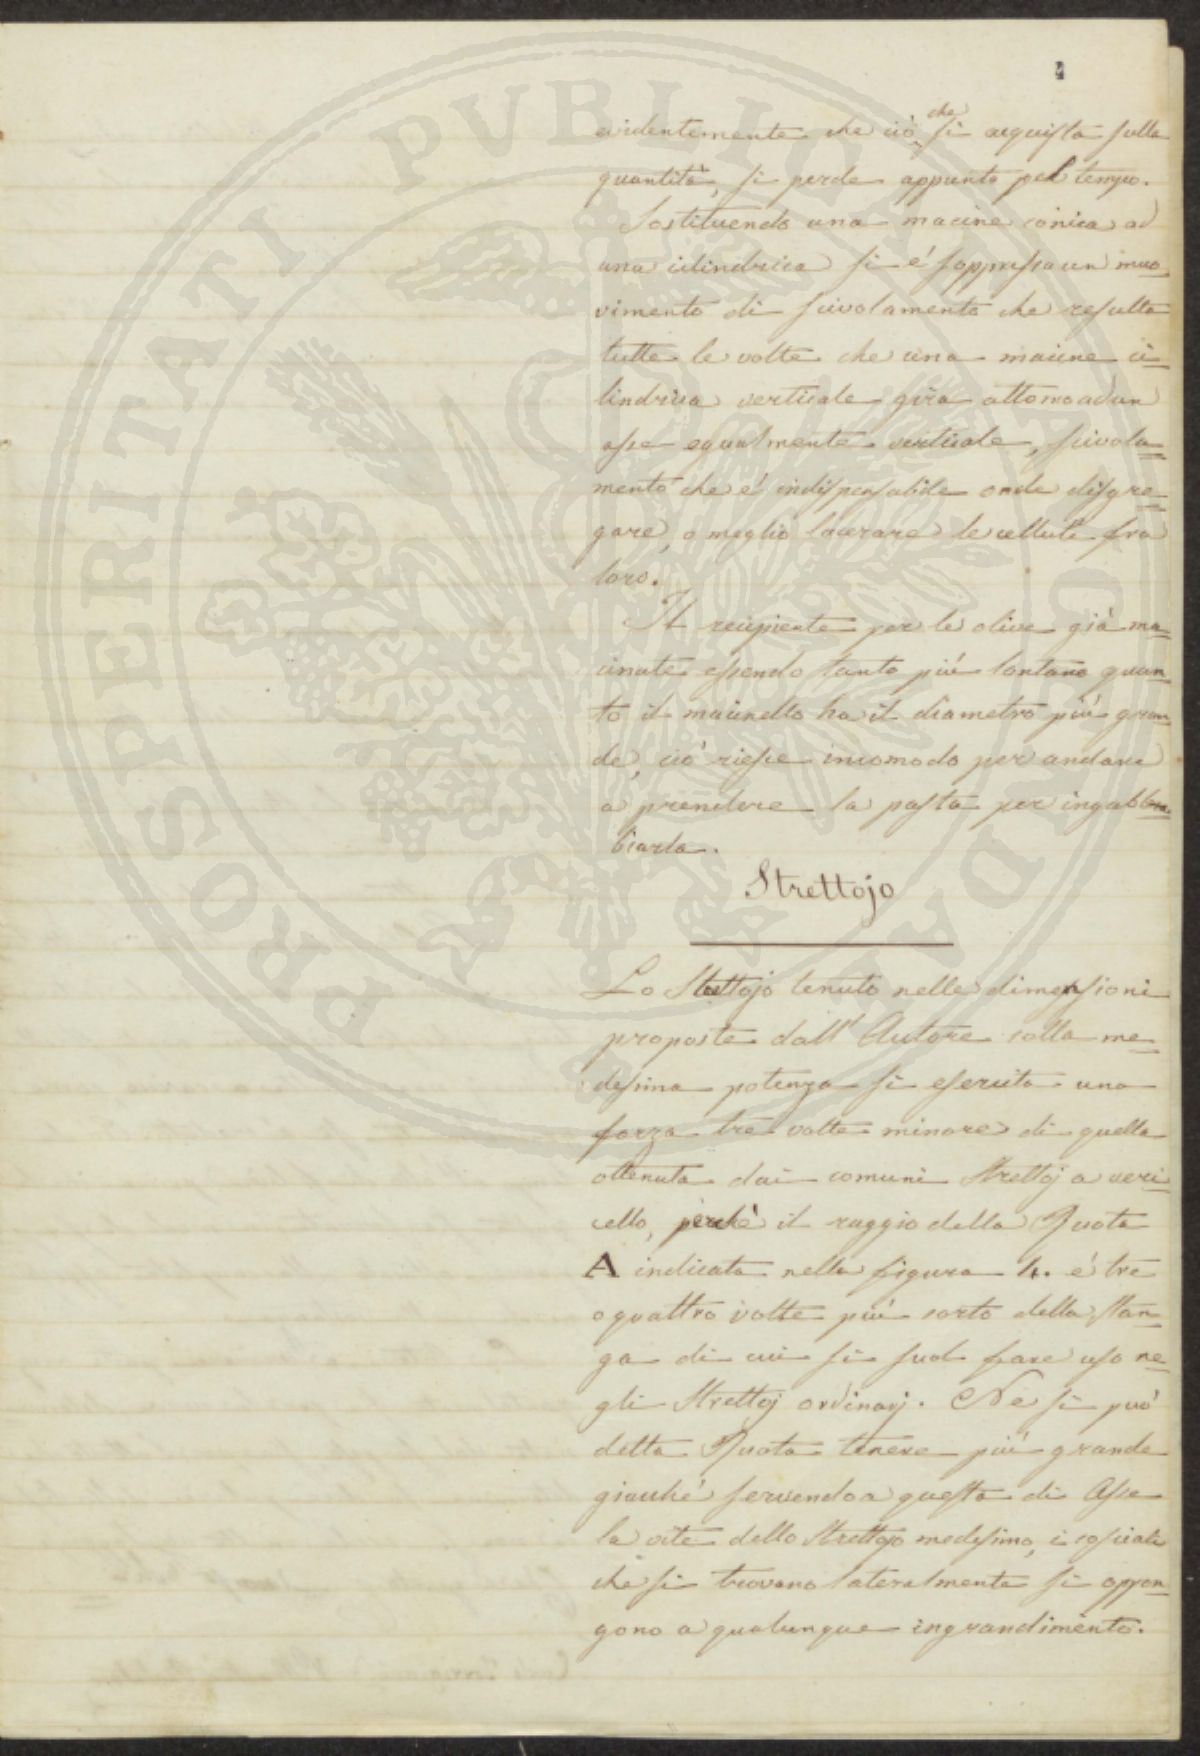 evidentemente che ciò che si acquista sulla
quantità, si perde appunto pel tempo.
Sostituendo una macine conica ad
una cilindrica si é soppresso un muo=
vimento di scivolamento che resulta
tutte le volte che una macine ci=
lindrica verticale gira attorno ad un
asse egualmente verticale, scivola=
mento che é indispensabile onde disgre=
gare, o meglio lacerare le cellule fra
loro.
Il recipiente per le olive già ma=
cinate essendo tanto più lontano quan=
to il macinello ha il diametro più gran=
de, ció riesce incomodo per andare
a prendere la pasta per ingab=
biarla.
Strettojo
Lo Strettojo tenuto nelle dimensioni
proposte dall'Autore colla me=
desima potenza si esercita una
forza tre volte minore di quella
ottenuta dai comuni Strettoj a veri=
cello, perché il raggio della Ruota
A indicata nella figura 4. é tre
o quattro volte più corto della stan=
ga di cui si suol fare uso ne=
gli Strettoj ordinarj. Né si può
detta Ruota tenere più grande
giacché servendo a questa di Asse
la vite dello Strettojo medesimo, i cosciali
che si trovano lateralmente si oppon=
gono a qualunque ingrandimento.
PUBLICAE PROSPERITATI